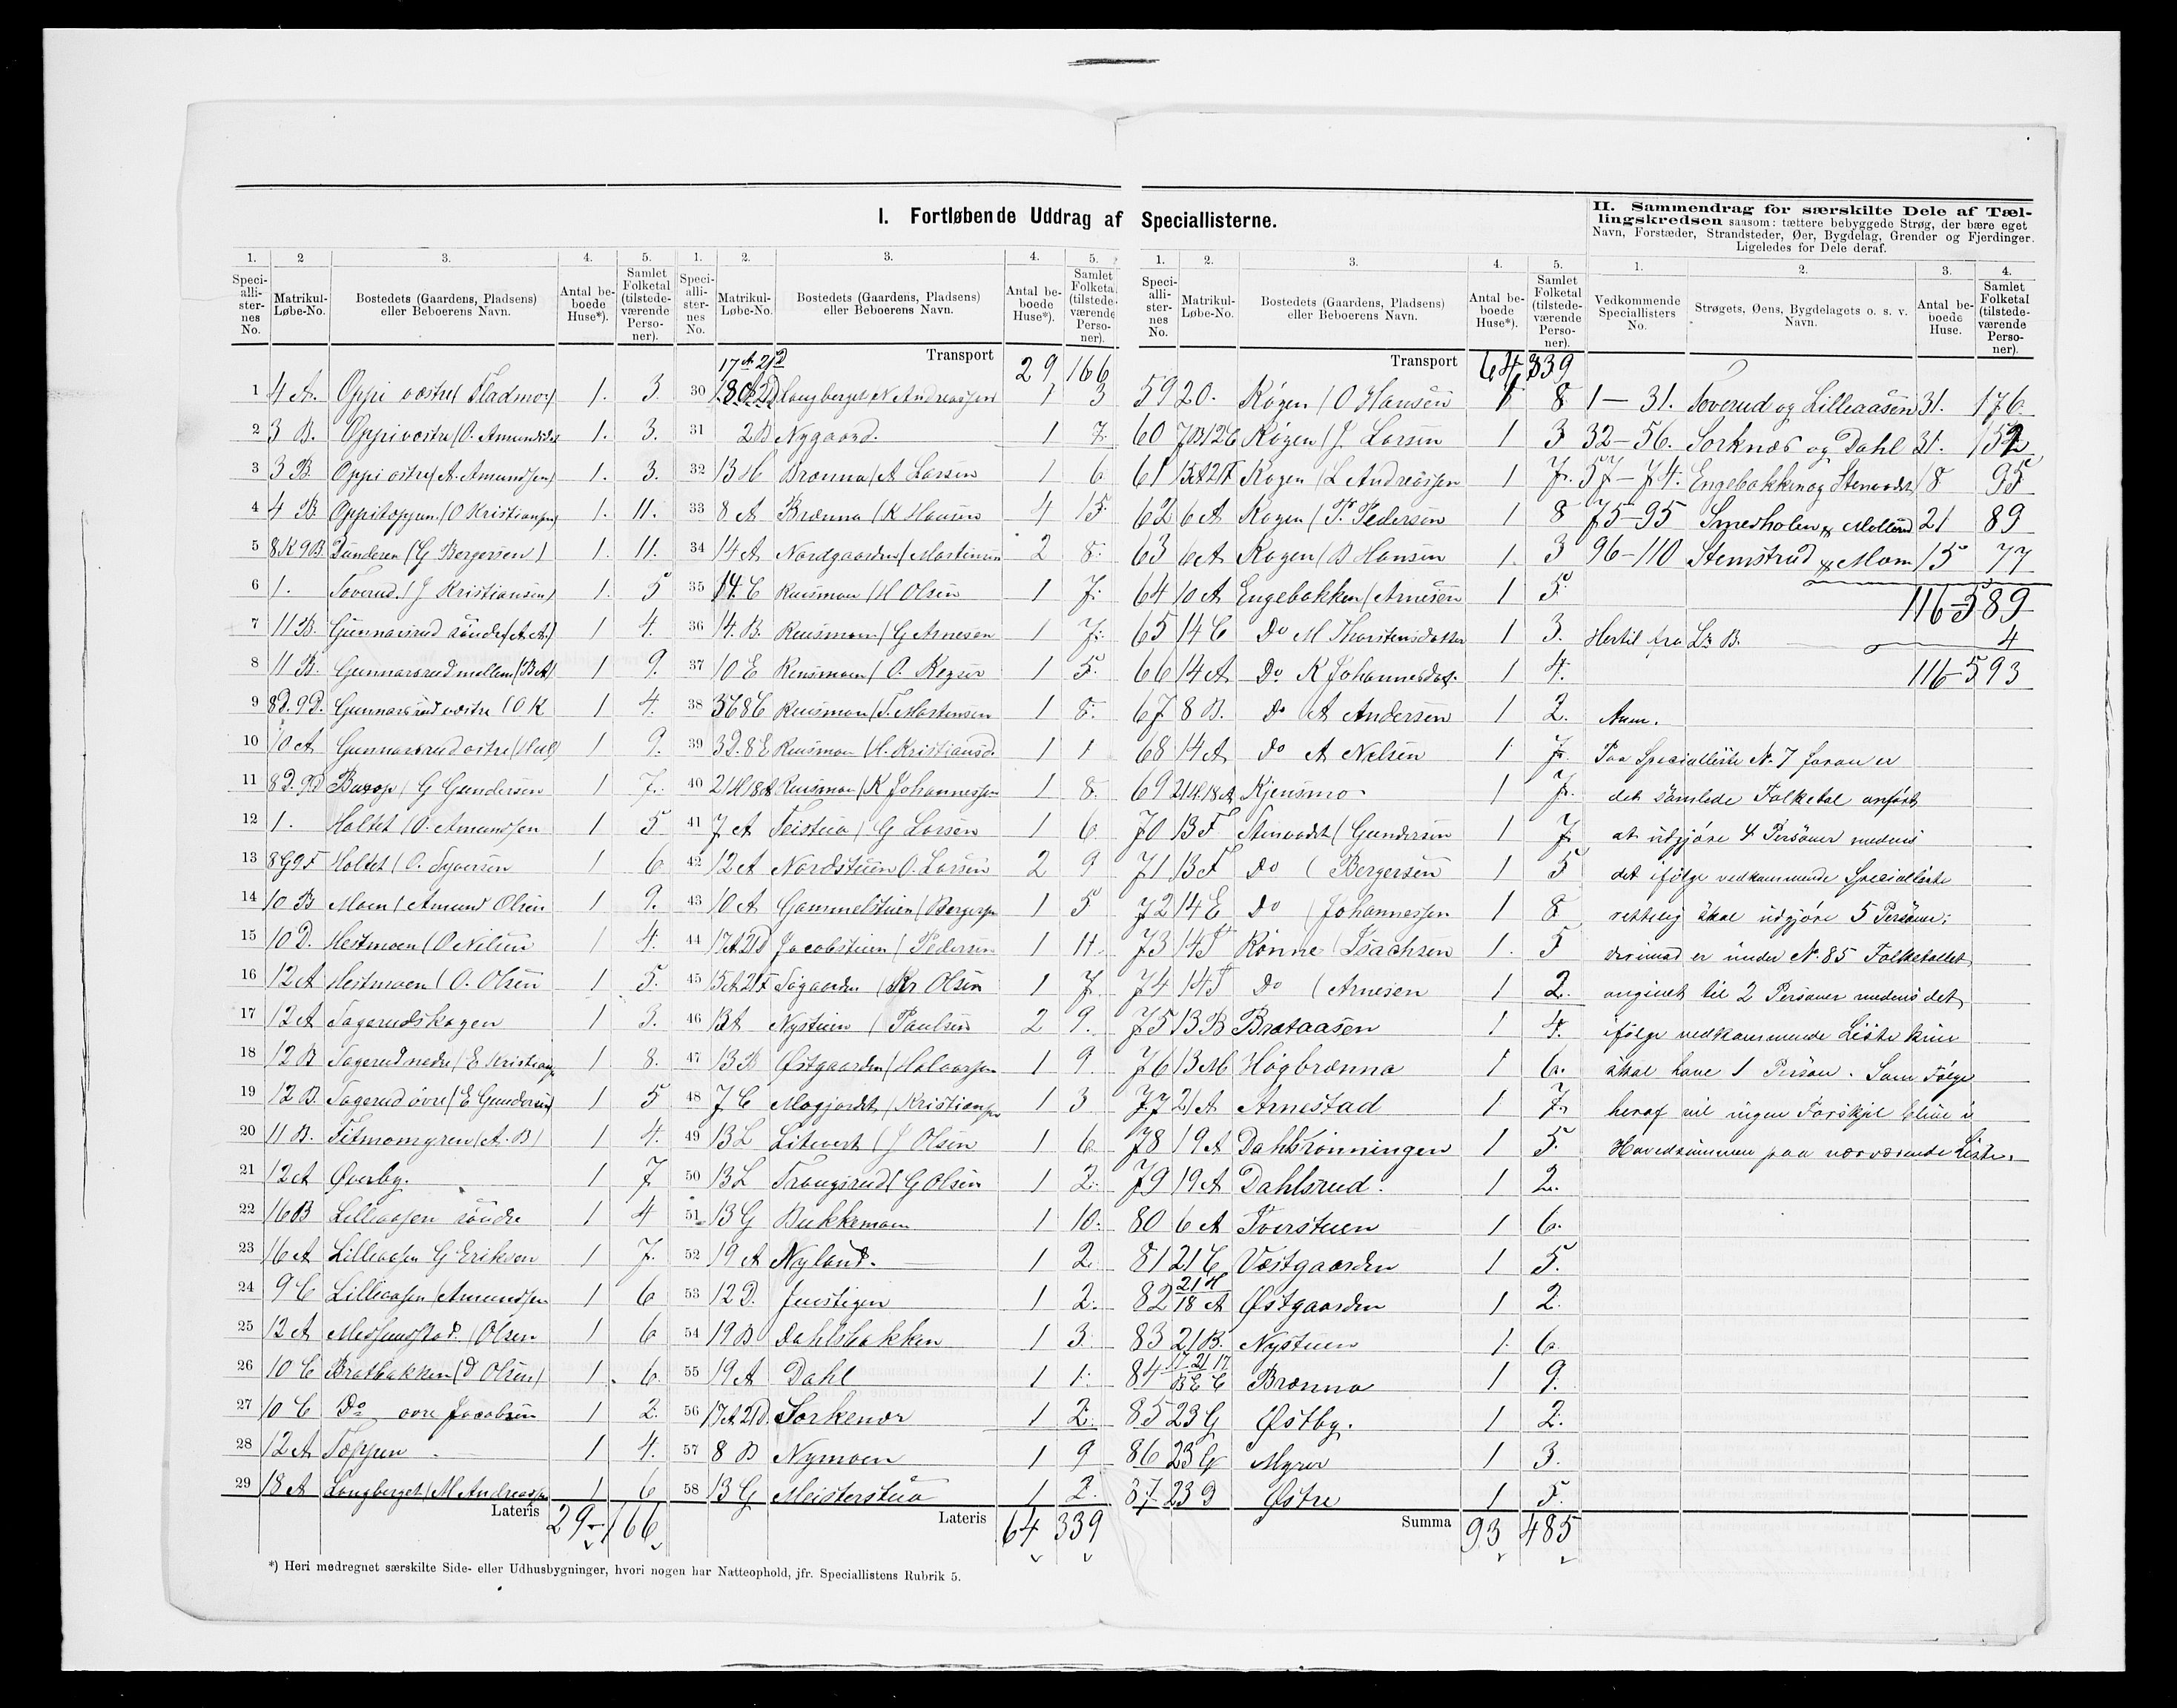 I. Fortløbende Uddrag af Speciallisterne.
1. 2 3. 4. 5.
Speciallisternes No. Matrikul-Løbe-No. Bostedets (Gaardens, Pladsens) eller Beboerens Navn. Antal beboede Huse*). Samlet Folketal (tilstedeværende Personer).
1 4 A. Oppi væstre (Fladmo) 1. 3.
2 3 B. Oppi væstre (O. Amundsen 1. 3.
3 3 B. Oppi østre (A. Amundsen) 1. 3.
4 4 B. Oppitoppen (O Kristiansen) 1. 11.
5 8K 9B Bunderen (G Bergersen) 1. 11.
6 1. Toverud (J Kristiansen) 1. 5
7 11 B. Gunnarsrud søndre (A. A.) 1 4.
8 11 B. Gunnarsrud mellem (B A) 1 9.
9 8D. 9D. Gunnarsrud væstre (O K 1 4.
10 10 A Gunnarsrud østre 1 9.
11 8D. 9D G Gundersen 1 7.
12 1. Holtet (O. Amundsen 1 5
13 8G 9F Holtet (O. Syversen 1 6
14 10 B Moen (Amund Olsen 1 9.
15 10 D. Hestmoen (O Nilsen 1 4.
16 12 A Hestmoen (O. Olsen 1 5.
17 12 A Tagerudshagen 1 3.
18 12 B Tagerud nedre (E Kristians 1 8.
19 12 B. Tagerud øvre (E Gundersen 1 5
20 11 B. Titmomyren (A. B) 1 4.
21 12 A Øverby. 1 7
22 16 B Lilleaasen søndre 1 4
23 16 A Lilleaasen G Erikson 1 7.
24 9 C Lilleaasen (Amundsen 1 6
25 12 A (Olsen 1 6
26 10 C Bratbakken (D Olsen) 1. 6.
27 10 C Do øvre Jacobsen 1 2.
28 12 A Toppen 1 4.
29 18 A Langberget (M Andreasen 1 6
Lateris 29 – 166
1. 2. 3. 4. 5.
Speciallisternes No. Matrikul-Løbe-No. Bostedets (Gaardens, Pladsens) eller Beboerens Navn. Antal beboede Huse*). Samlet Folketal (tilstedeværende Personer).
17 A 21 D Transport 29 166
30 Langberget (N Andreassen 1 3
31 2 B Nygaard. 1 7.
32 13 H Brænna (A Larsen 1 6
33 8 A Brænna (K Hansen 4 15
34 14 A Nordgaarden (Martinsen 2 8.
35 14. C Rensmoen (H Olsen 1 7.
36 14. B. Rensmoen (G Arnesen 1 7.
37 10 E Rensmoen (O. Keyser 1 5.
38 3C 8C Rensmoen (T. Mortensen 1 8.
39 3D. 8 E Rensmoen (H. Kristiansd. 1 1
40 21H 18A Rensmoen (K Johannessen 1 8.
41 7 A Teistua (G Larsen 1 6
42 12 A Nordstuen O. Larsen 2 9
43 10 A Gammelstuen (Bergersen 1 5
44 17A 21D Jacobstuen (Pedersen 1 11.
45 15A 21F Søgaarden (Kr Olsen 1 7
46 13 A Nystuen (Paulsen 2 9.
47 13 B Østgaarden (Halvorsen 1 9
48 7 C Mogjordet (Kristiansen 1 3
49 13 L Litevert (J Olsen 1 6
50 13 L Trangsrud (G Olsen 1 2.
51 13 G Bukkemoen 1 10.
52 19 A Nyland. 1 2.
53 12 D. Jenstigen 1 2.
54 19 B Dahlsbakken 1 3.
55 19 A Dahl 1 1.
56 17A 21D. Sorkenæs 1 2.
57 8 B Nymoen 1 9
58 13 G Meisterstua 1 2.
Lateris 64 339
1. 2. 3. 4. 5.
Speciallisternes No. Matrikul-Løbe-No. Bostedets (Gaardens, Pladsens) eller Beboerens Navn. Antal beboede Huse*). Samlet Folketal (tilstedeværende Personer).
Transport 64 339
59 20. Røgen (O Hansen 1 8
60 7B 12C Røgen (J. Larsen 1 3
61 15A 21F Røgen (L Andreassen 1 7.
62 6 A Røgen (P. Pedersen 1 8
63 6 A Røgen (B Hansen 1. 3
64 10 A Engebakken (Arnesen 1 5.
65 14 C Do M Thorstensdatter 1 3.
66 14 A Do K Johannesdat. 1 4.
67 8 B. Do A Andersen 1 2.
68 14 A Do A Nilsen 1 7.
69 21H. 18A. Kjensmo 1 7.
70 13 F Stenvadet (Gundersen 1 7
71 13 F Do (Bergersen 1 5
72 14 E Do (Johannessen 1 8
73 14 F Rønne (Isachsen 1. 5
74 14 F Do (Arnesen 1 2.
75 13 B Brataasen 1 4.
76 13 M Høgbrænna 1 6.
77 21 A Arnestad 1 7.
78 19 A Dahlsrønningen 1 5.
79 19 A Dahlsrud. 1 2.
80 6 A Tverstuen 1 6.
81 21 C Væstgaarden 1 5.
82 21 H 18 A Østgaarden 1 2.
83 21 B. Nystuen 1. 6.
84 17 21 17 B E C Brænna 1 9.
85 23 G Østby. 1 2.
86 23 G Myrer 1 3.
87 23 D Østre 1 5.
Summa 93 485
II. Sammendrag for særskilte Dele af Tællingskredsen saasom: tættere bebyggede Strøg, der bære eget
Navn, Forstæder, Strandsteder, Øer, Bygdelag, Grender og Fjerdinger.
Ligeledes for Dele deraf.
1. 2. 3. 4.
Vedkommende Speciallisters No. Strøgets, Øens, Bygdelagets o. s. v. Navn. Antal beboede Huse. Samlet Folketal (tilstedeværende Personer).
1 – 31. Toverud og Lilleaasen 31. 176.
32 – 56. Sorknæs og Dahl 31. 152
57 – 74. Engebakken og Stenvadet 18 95
75 – 95 Smedholen & Møllerud 21 89
96 – 110 Stemsrud & Mom 15 77
116 – 589
Hertil fra Ltr B. 4
116 – 593
Anm.
Paa Specialliste No 7 foran er
det samlede Folketal anført
at udgjøre 4 Personer medens
det ifølge vedkommende Specialliste
rettelig skal udgjøre 5 Personer;
derimod er under No 85 Folketallet
angivet til 2 Personer medens det
ifølge vedkommende Liste kun
skal have 1 Person. Som Følge
heraf vil ingen Forskjel blive i
Hovedsummen paa nærværende Liste.
*) Heri medregnet særskilte Side- eller Udhusbygninger, hvori nogen har Natteophold, jfr. Speciallistens Rubrik 5.